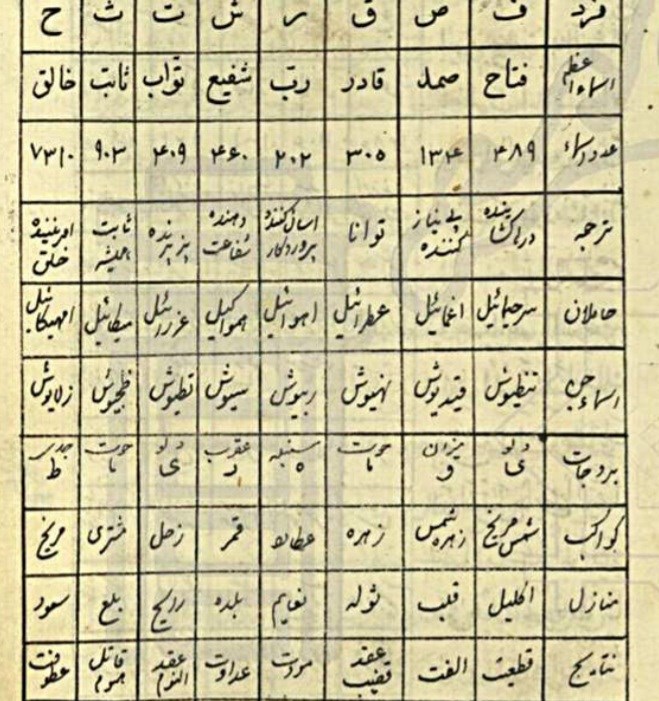 فرد ف ص ق ر ش ت ث خ
اسماء اعظم فتاح صمد قادر رب شفیع تواب ثابت خالق
عدد اسماء ۴۸۹ ۱۳۴ ۳۰۵ ۲۰۲ ۴۶۰ ۴۰۹ ۹۰۳ ۷۳۱۰
ترجمه بی نیاز کننده توانا پروردگار دهنده شفاعت ثابت همیشه خلق
حاملان سرحمائیل اعمائیل عطرائیل اموائیل همواکیل عزرائیل میکائیل
اسماء جن تنطیوش ربیوش تطیوش
بروجات دلو ی میزان و حوت سنبله ه عقرب دلو ی حوت جدی ط
کواکب شمس مریخ زهره شمس زهره عطارد قمر زحل مشتری مریخ
منازل اکلیل قلب ثوله نعایم بلده ذابح بلع سعود
نتایج قطعیت الفت عقد قضیب مودت عداوت عقد النوم قاتل هموم عطوفت